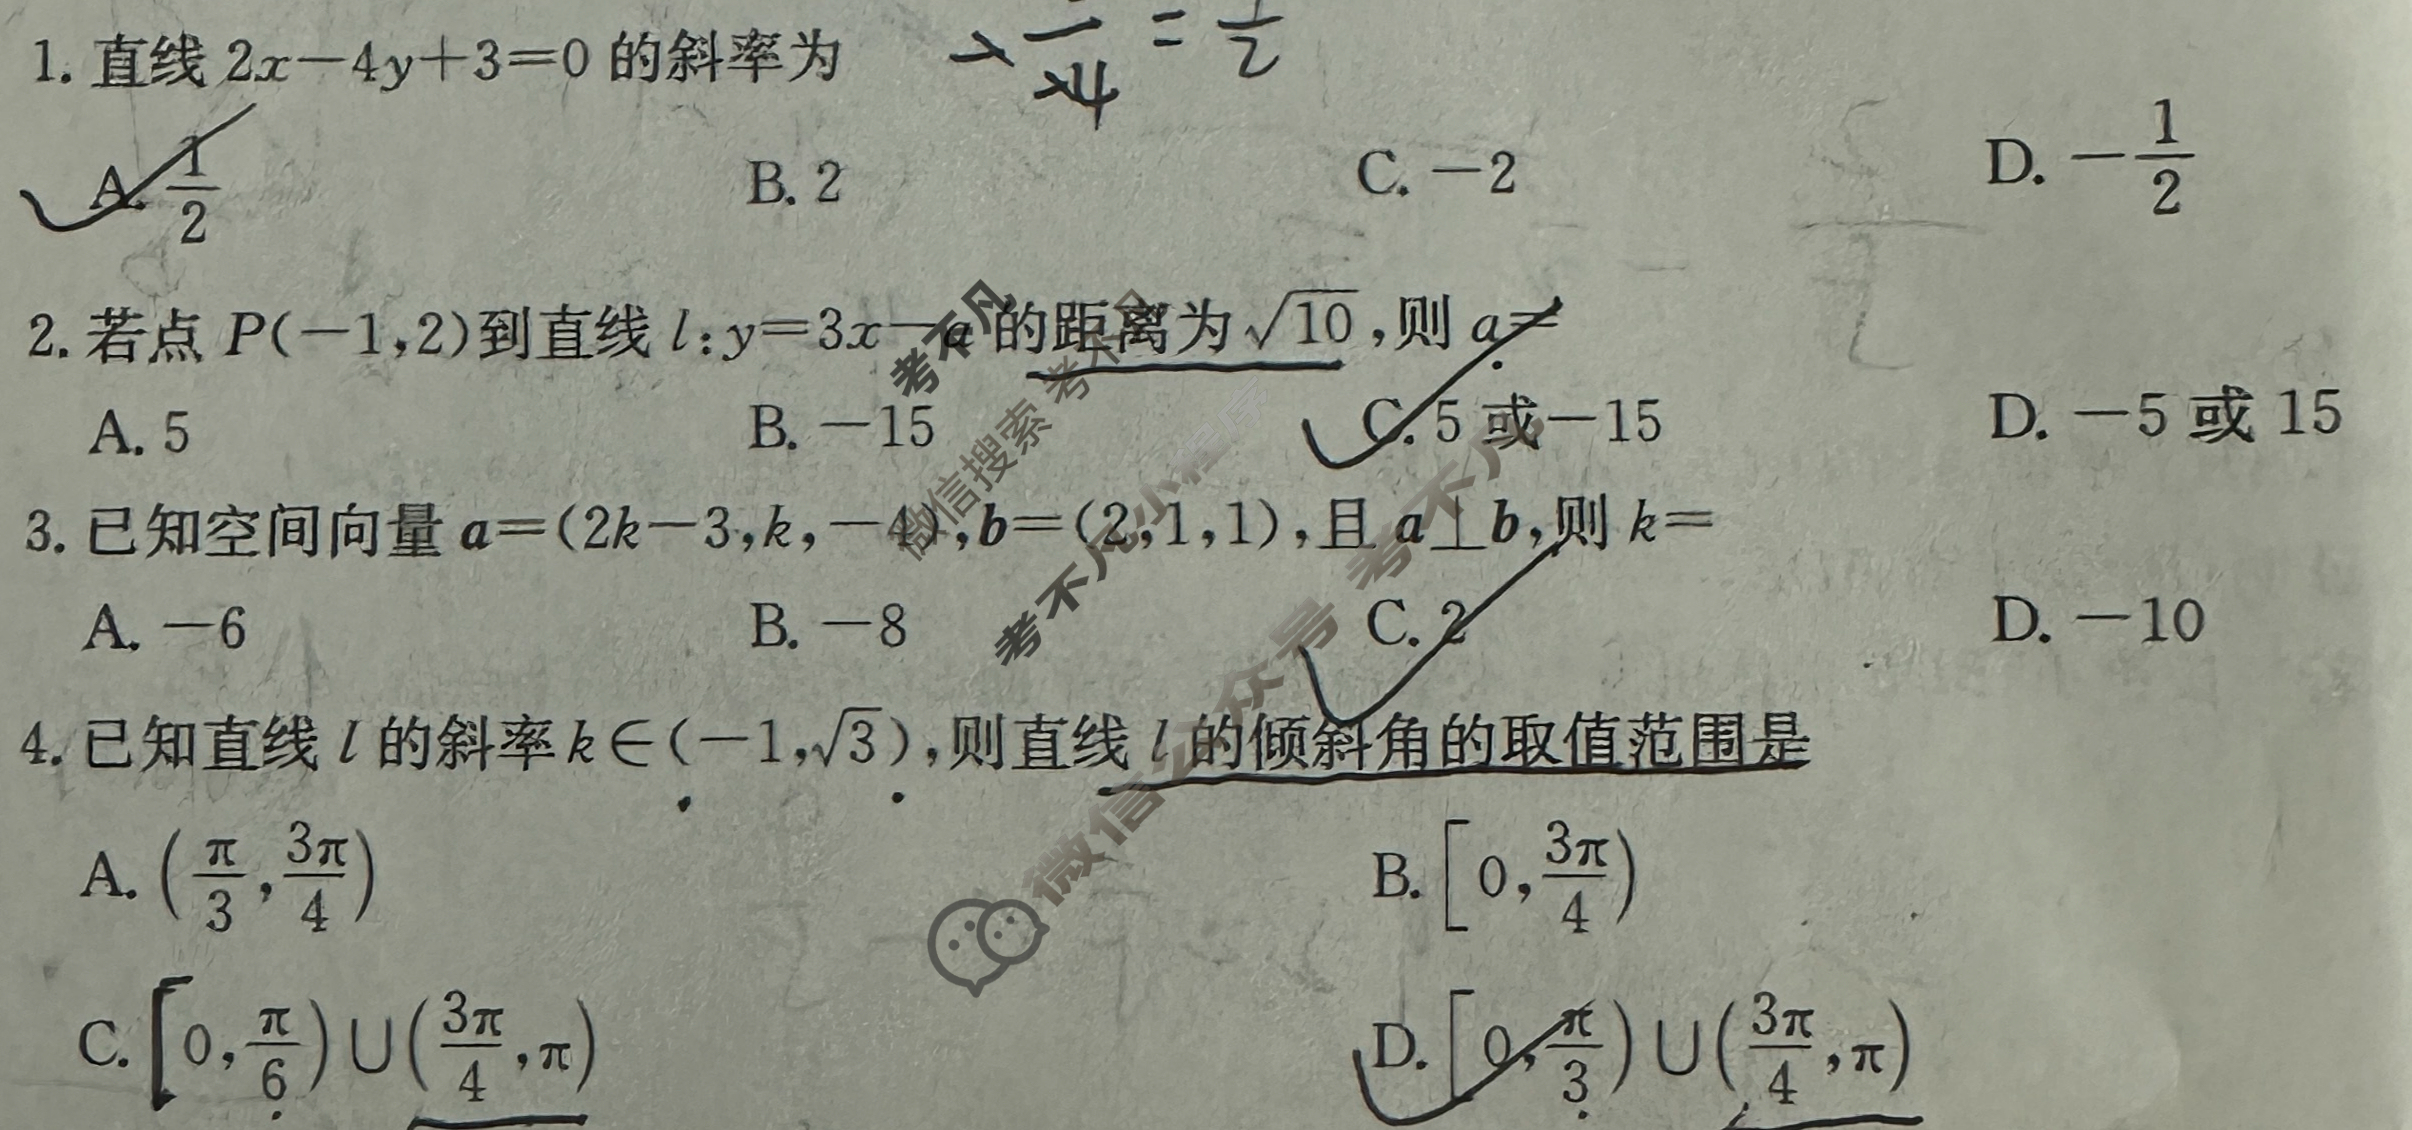 1. 直线 2x-4y+3=0 的斜率为
= 1/2
A. 1/2 B. 2 C. -2 D. -1/2
2. 若点 P(-1,2)到直线 l:y=3x-a 的距离为√10,则 a=
A. 5 B. -15 C. 5 或-15 D. -5 或 15
3. 已知空间向量 a=(2k-3,k,-4),b=(2,1,1),且 a⊥b,则 k=
A. -6 B. -8 C. 2 D. -10
4. 已知直线 l 的斜率 k∈(-1,√3),则直线 l 的倾斜角的取值范围是
A. (π/3,3π/4) B. [0,3π/4)
C. [0,π/6)∪(3π/4,π) D. [0,π/3)∪(3π/4,π)
考不凡
微信搜索 考不凡
考不凡小程序
微信公众号 考不凡